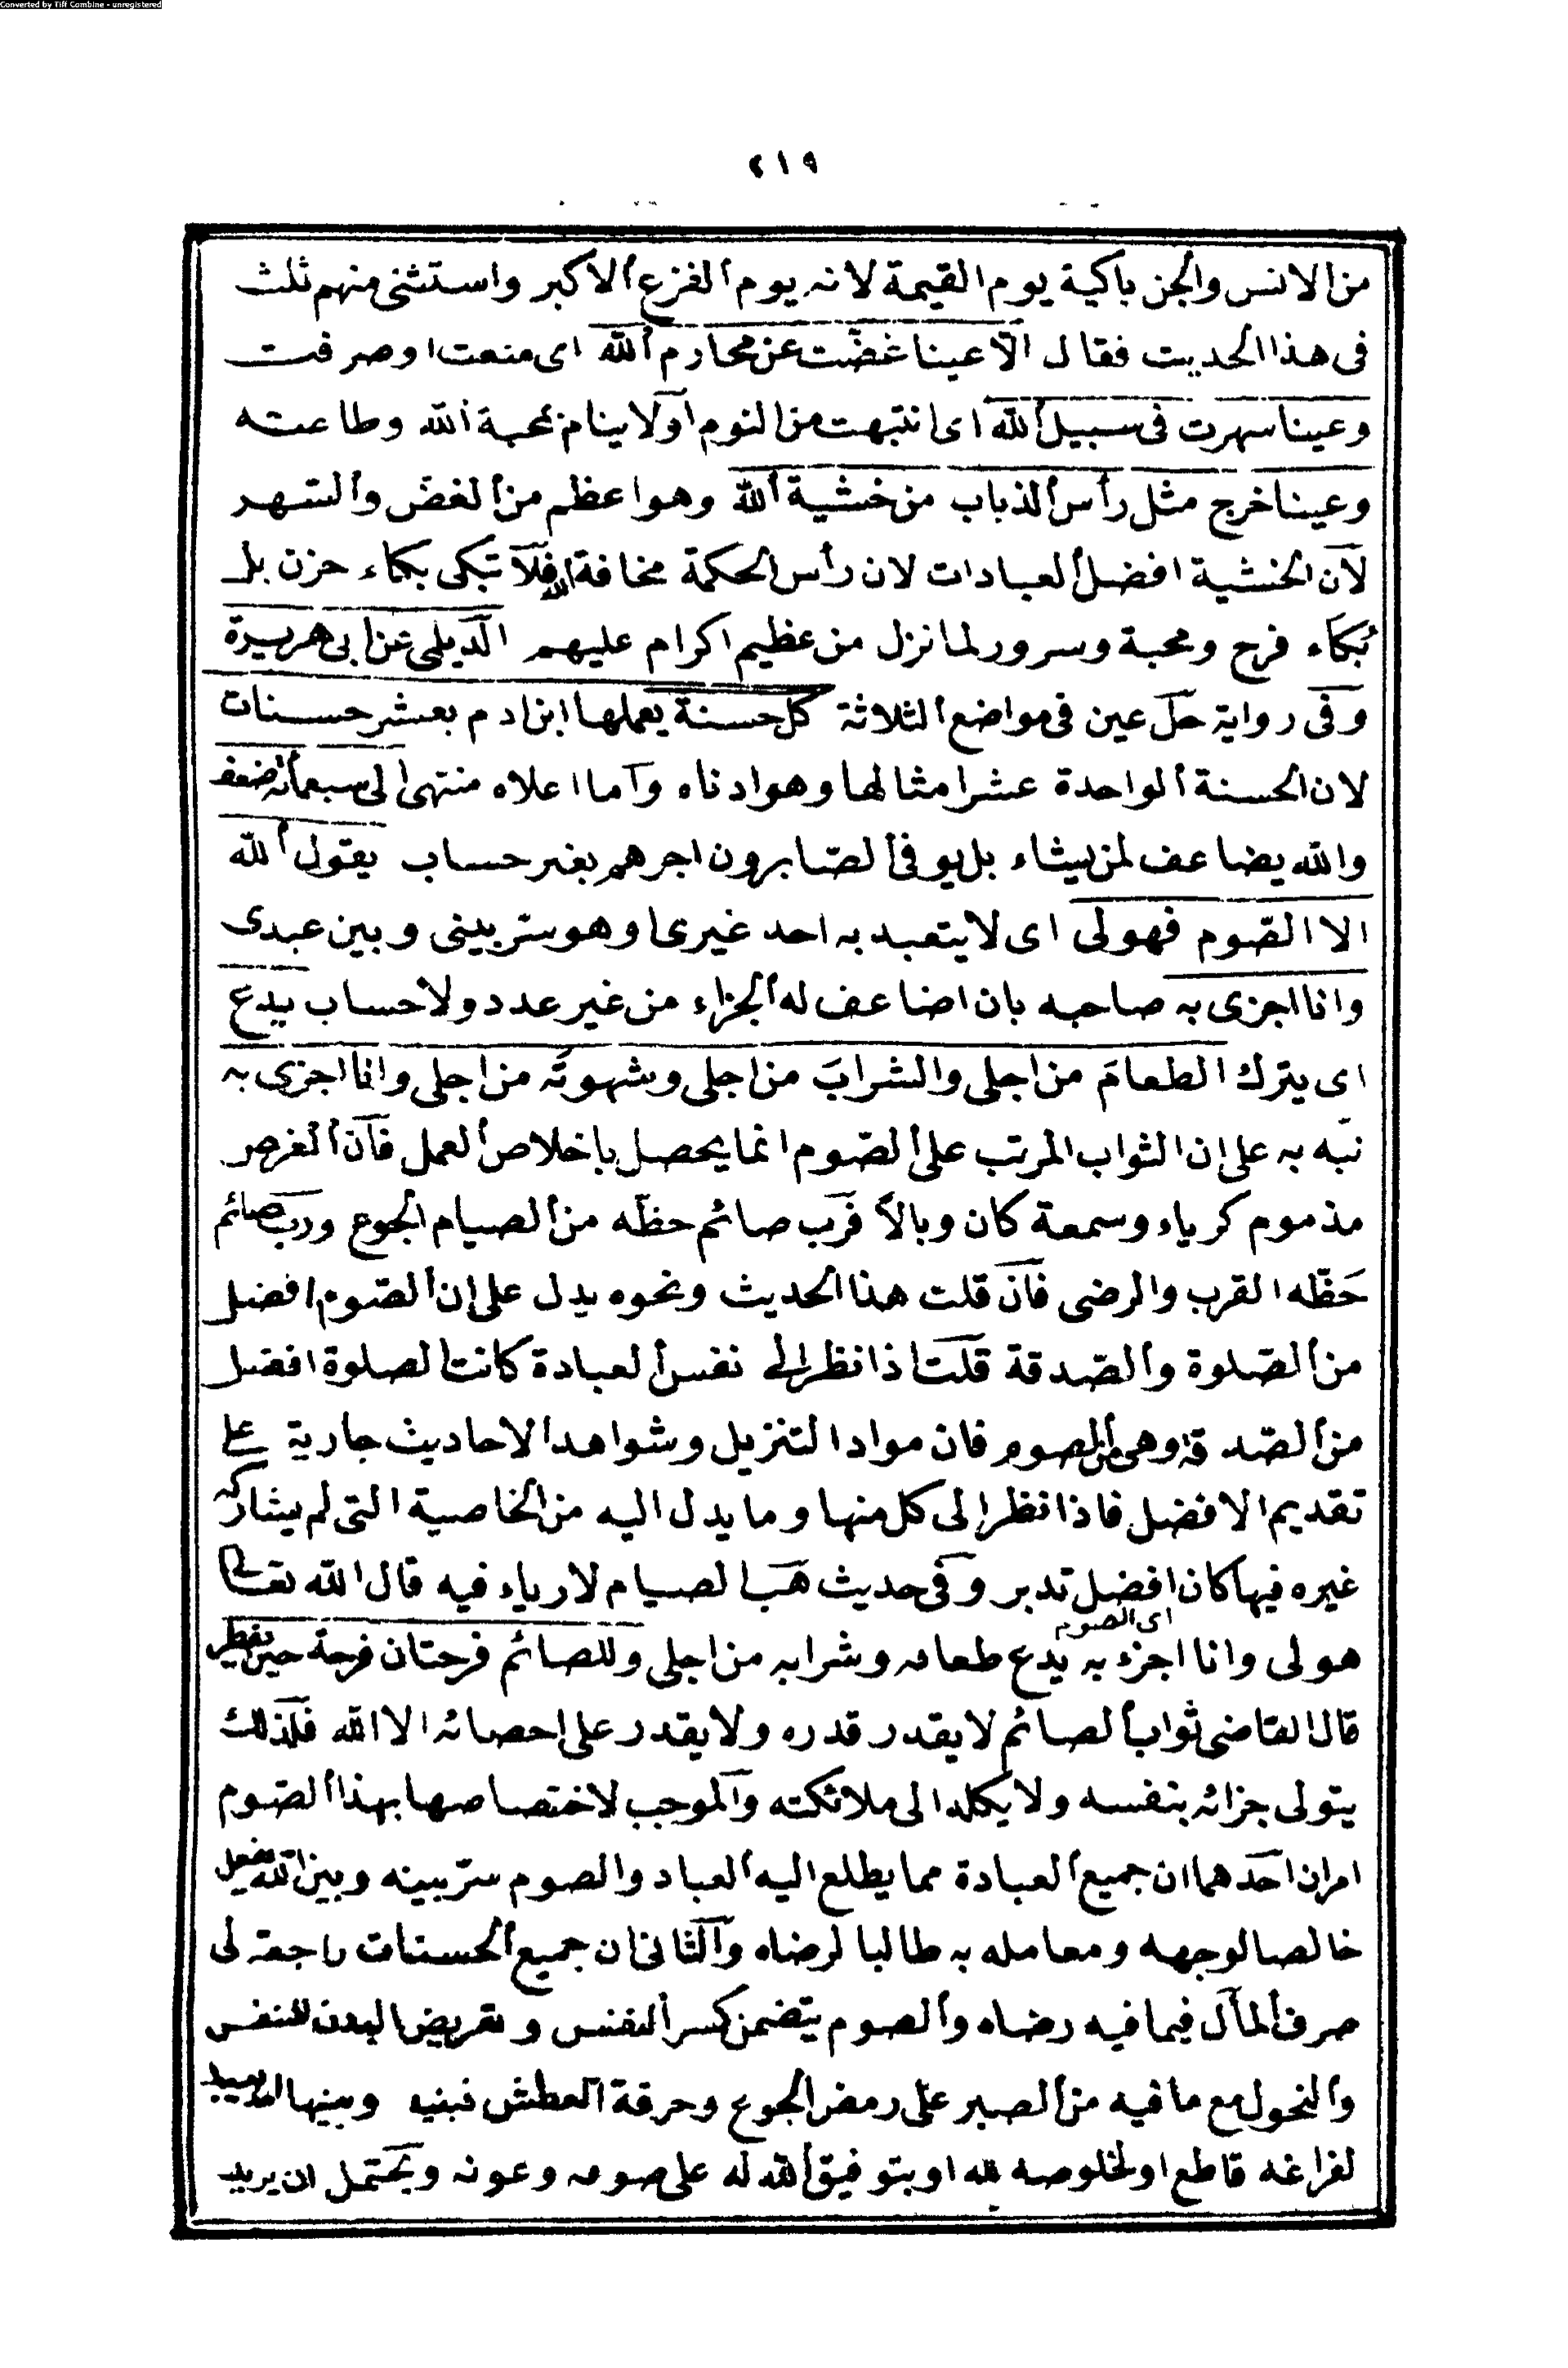 Converted by Tiff Combine - unregistered
٤١٩
من الانس والجن باكية يوم القيمة لانه يوم الفزع الاكبر واستثنى منهم ثلث
فى هذا الحديث فقال الّا عينا غضّت عن محارم الله اى منعت او صرفت
وعينا سهرت فى سبيل الله اى انتبهت من النوم اولا ينام بمحبة الله وطاعته
وعينا خرج مثل رأس الذباب من خشية الله وهو اعظم من الغض والسهر
لان الخشية افضل العبادات لان رأس الحكمة مخافة الله فلا تبكى بكاء حزن بل
بكاء فرح ومحبة وسرور لما نزل من عظيم اكرام عليهم الديلمى عن ابى هريرة
وفى رواية حل عين فى مواضع الثلاثة كل حسنة يعملها ابن ادم بعشر حسنات
لان الحسنة الواحدة عشر امثالها وهو ادناه واما اعلاه منتهى الى سبعمائة ضعف
والله يضاعف لمن يشاء بل يوفى الصّابرون اجرهم بغير حساب يقول الله
الا الصّوم فهو لى اى لا يتعبد به احد غيرى وهو ستر بينى وبين عبدى
وانا اجزى به صاحبه بان اضاعف له الجزاء من غير عدد ولا حساب يدع
اى يترك الطعامَ من اجلى والشرابَ من اجلى وشهوتَه من اجلى وانا اجزى به
نبّه به على ان الثواب المرتب على الصّوم انما يحصل باخلاص العمل فان الغرض
مذموم كرياء وسمعة كان وبالاً فرب صائم حظّه من الصيام الجوع ورب صائم
حَظّه القرب والرضى فان قلت هذا الحديث ونحوه يدل على ان الصّوم افضل
من الصّلوة والصّدقة قلت اذا نظر الى نفس العبادة كانت الصلوة افضل
من الصّدقة وهى من الصوم فان مواد التنزيل وشواهد الاحاديث جارية على
تقديم الافضل فاذا نظر الى كل منها وما يدل اليه من الخاصية التى لم يشاركه
غيره فيها كان افضل تدبر وفى حديث هب الصيام لا رياء فيه قال الله تعالى
اى الصوم
هو لى وانا اجزء به يدع طعامه وشرابه من اجلى وللصائم فرحتان فرحة حين يفطر
قال القاضى ثواب الصائم لا يقدر قدره ولا يقدر على احصائه الا الله فلذلك
يتولى جزائه بنفسه ولا يكله الى ملائكته والموجب لاختصاصها بهذا الصّوم
امران احدهما ان جميع العبادة مما يطلع اليه العباد والصوم ستر بينه وبين الله يفعل
خالصا لوجهه ومعامله به طالبا لرضاه والثانى ان جميع الحسنات راجعة لى
صرف المال فيما فيه رضاه والصوم يتضمن كسر النفس وتعريض البدن للنقص
والنحول مع ما فيه من الصبر على رمض الجوع وحرقة العطش فبنيه وبينها امد بعيد
لفراغه قاطع او لخلوصه لله او بتوفيق الله له على صومه وعونه ويحتمل ان يريد